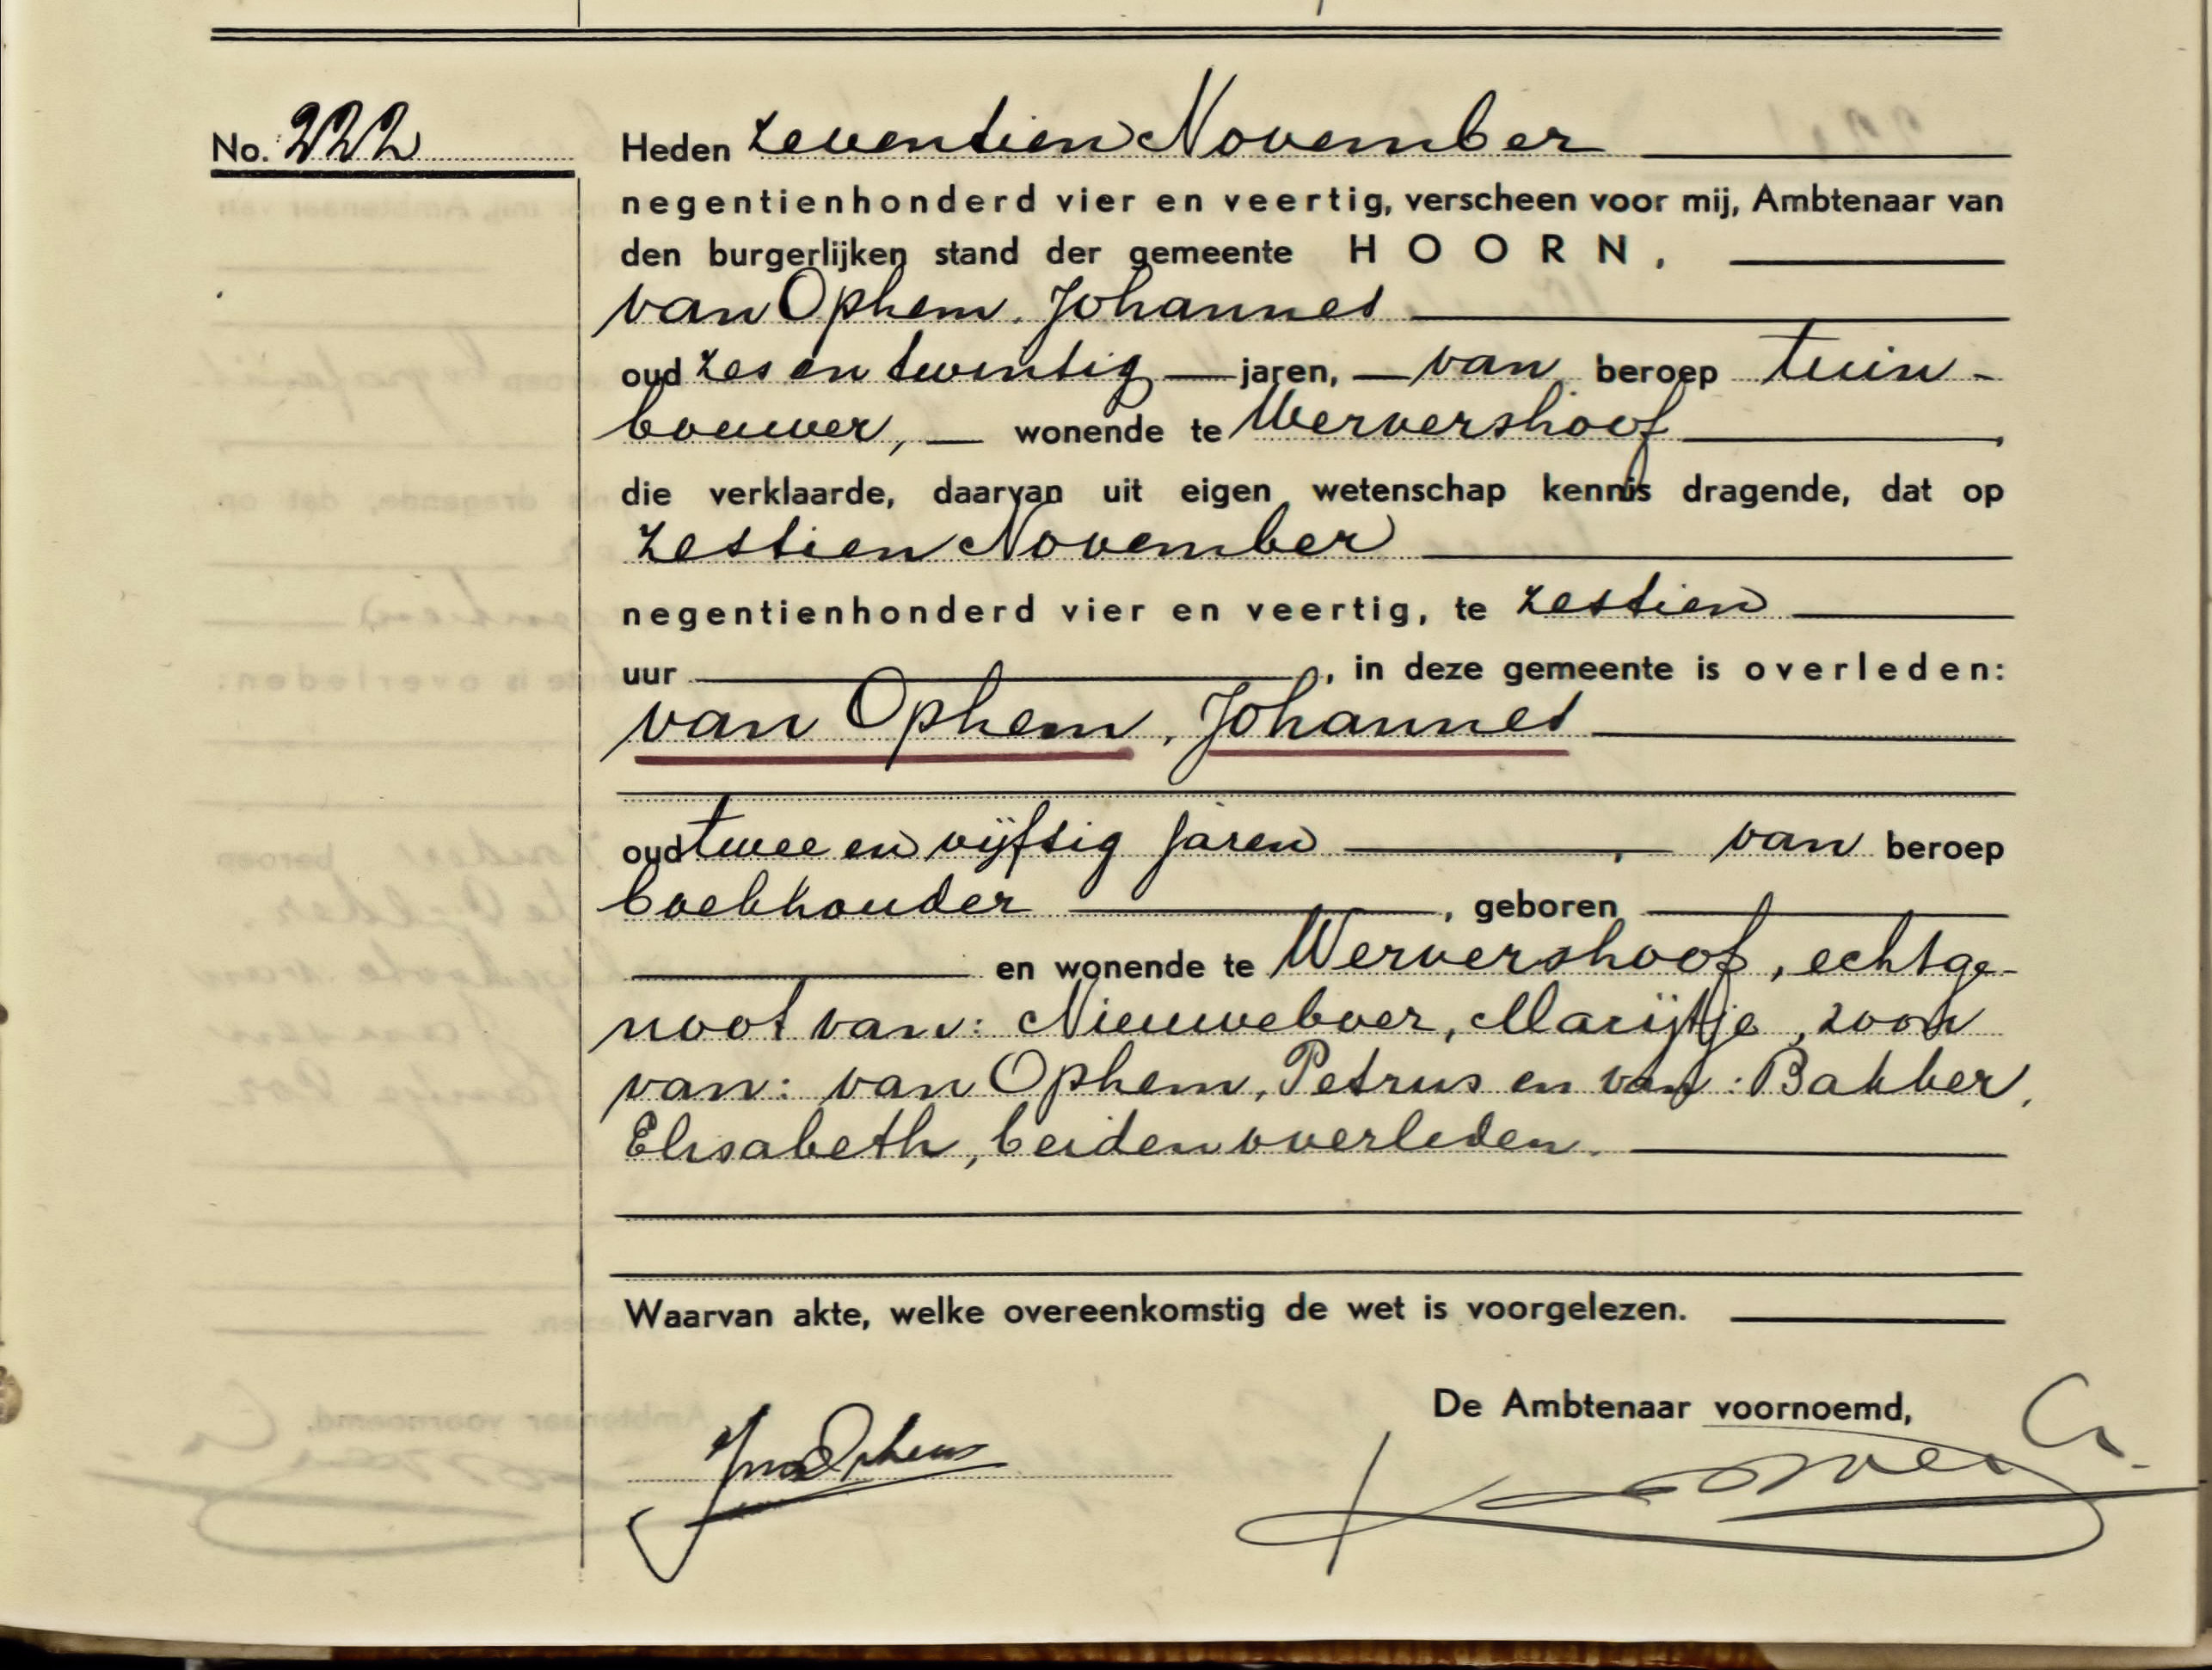 No. 222
Heden zeventien November
negentienhonderd vier en veertig, verscheen voor mij, Ambtenaar van
den burgerlijken stand der gemeente HOORN,
van Ophem, Johannes
oud zes en twintig jaren, van beroep tuin-
bouwer, wonende te Wervershoof,
die verklaarde, daarvan uit eigen wetenschap kennis dragende, dat op
zestien November
negentienhonderd vier en veertig, te zestien
uur, in deze gemeente is overleden:
van Ophem, Johannes
oud twee en vijftig jaren, van beroep
boekhouder, geboren
en wonende te Wervershoof, echtge-
noot van: Nieuweboer, Marijtje, zoon
van: van Ophem, Petrus en van: Bakker,
Elisabeth, beiden overleden.
Waarvan akte, welke overeenkomstig de wet is voorgelezen.
De Ambtenaar voornoemd,
JvanOphem